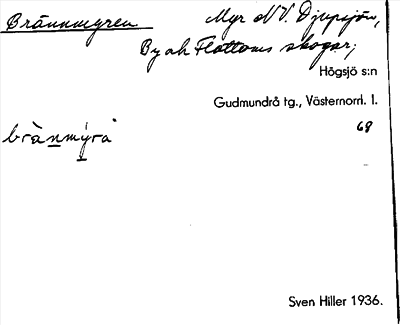 Brännmyren Myr NV. Djupsjön,
By ah Flottoms skogar;
Högsjö s:n
Gudmundrå tg., Västernorrl. l.
68
brànmýra
Sven Hiller 1936.